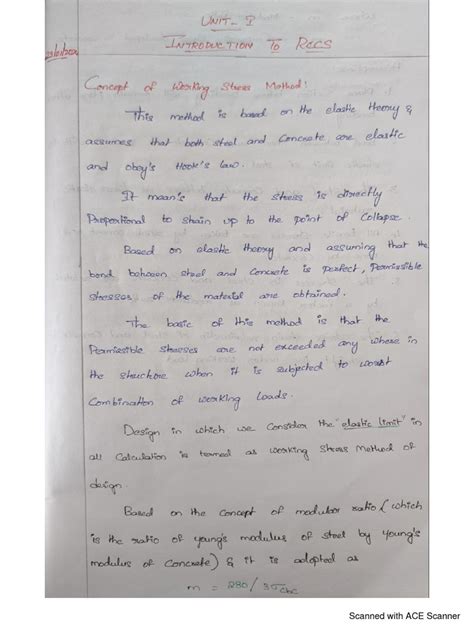 UNIT-I
INTRODUCTION TO RCCS
Concept of Working Stress Method:
This method is based on the elastic theory &
assumes that both steel and Concrete are elastic
and obey's Hook's law.
It mean's that the stress is directly
Proportional to strain up to the point of Collapse.
Based on elastic theory and assuming that the
bond between steel and Concrete is perfect, Permissible
stresses of the material are obtained.
The basic of this method is that the
Permissible stresses are not exceeded any where in
the structure when it is subjected to worst
Combination of working loads.
Design in which we Consider the "elastic limit" in
all Calculation is termed as working Stress Method of
design.
Based on the Concept of modular ratio (which
is the ratio of young's modulus of steel by young's
modulus of Concrete) & it is adopted as
m = 280/3σcbc
Scanned with ACE Scanner